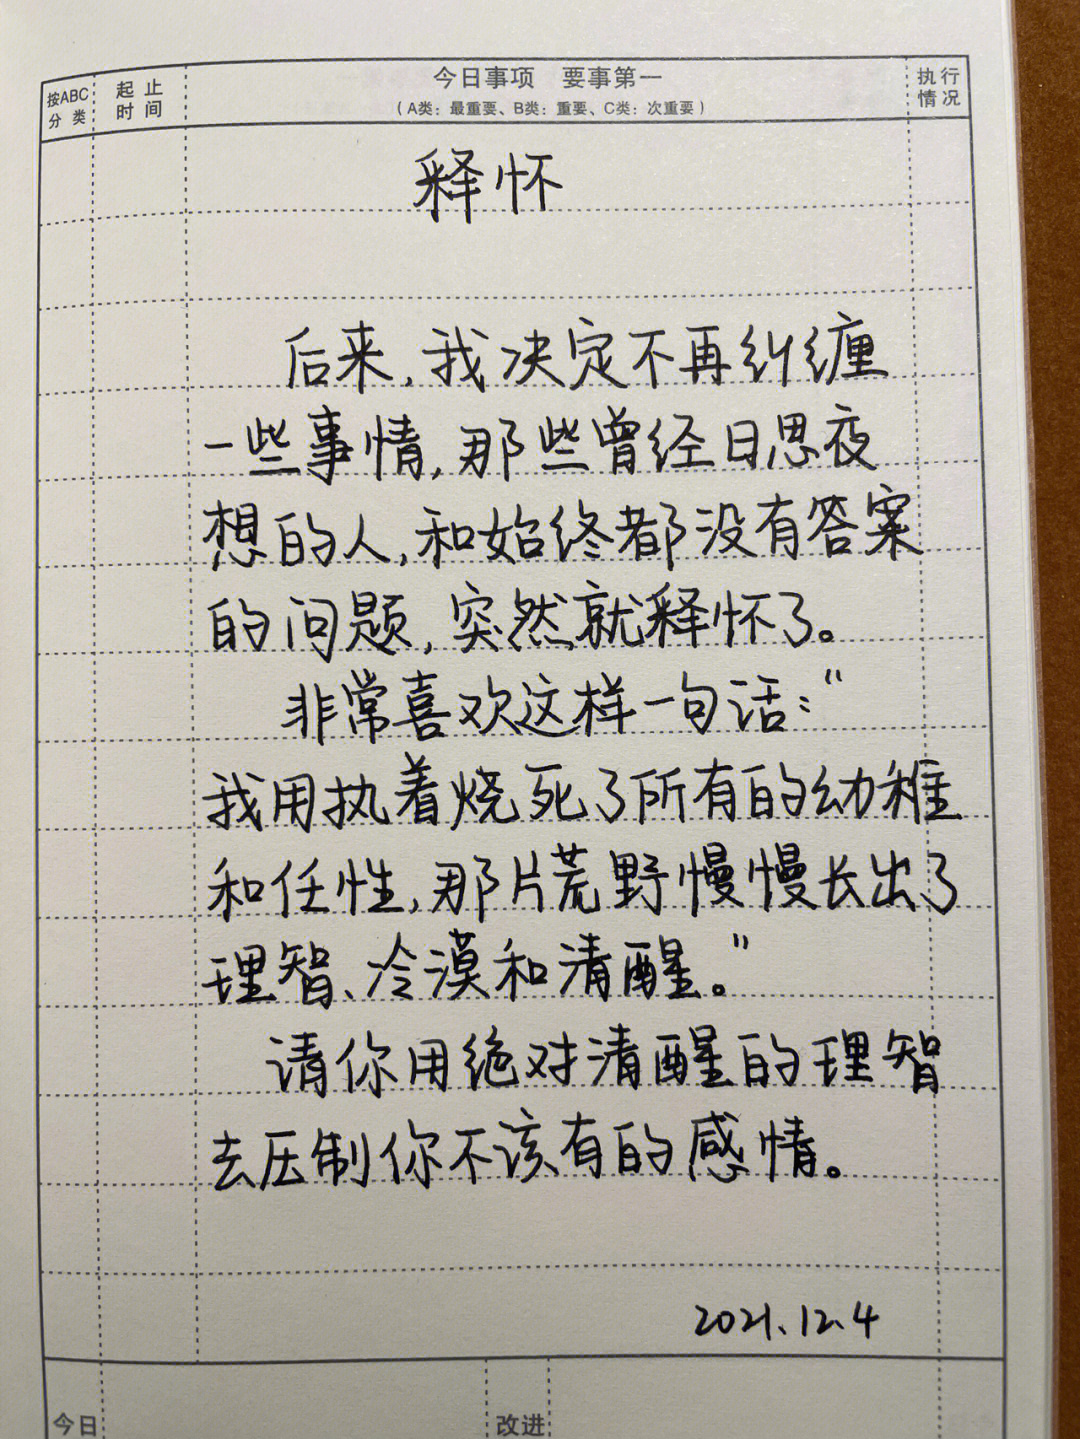 按ABC分类 起止时间 今日事项 要事第一 执行情况
（A类：最重要、B类：重要、C类：次重要）
释怀
后来,我决定不再纠缠
一些事情,那些曾经日思夜
想的人,和始终都没有答案
的问题,突然就释怀了。
非常喜欢这样一句话：“
我用执着烧死了所有的幼稚
和任性,那片荒野慢慢长出了
理智、冷漠和清醒。”
请你用绝对清醒的理智
去压制你不该有的感情。
2021.12.4
今日 改进